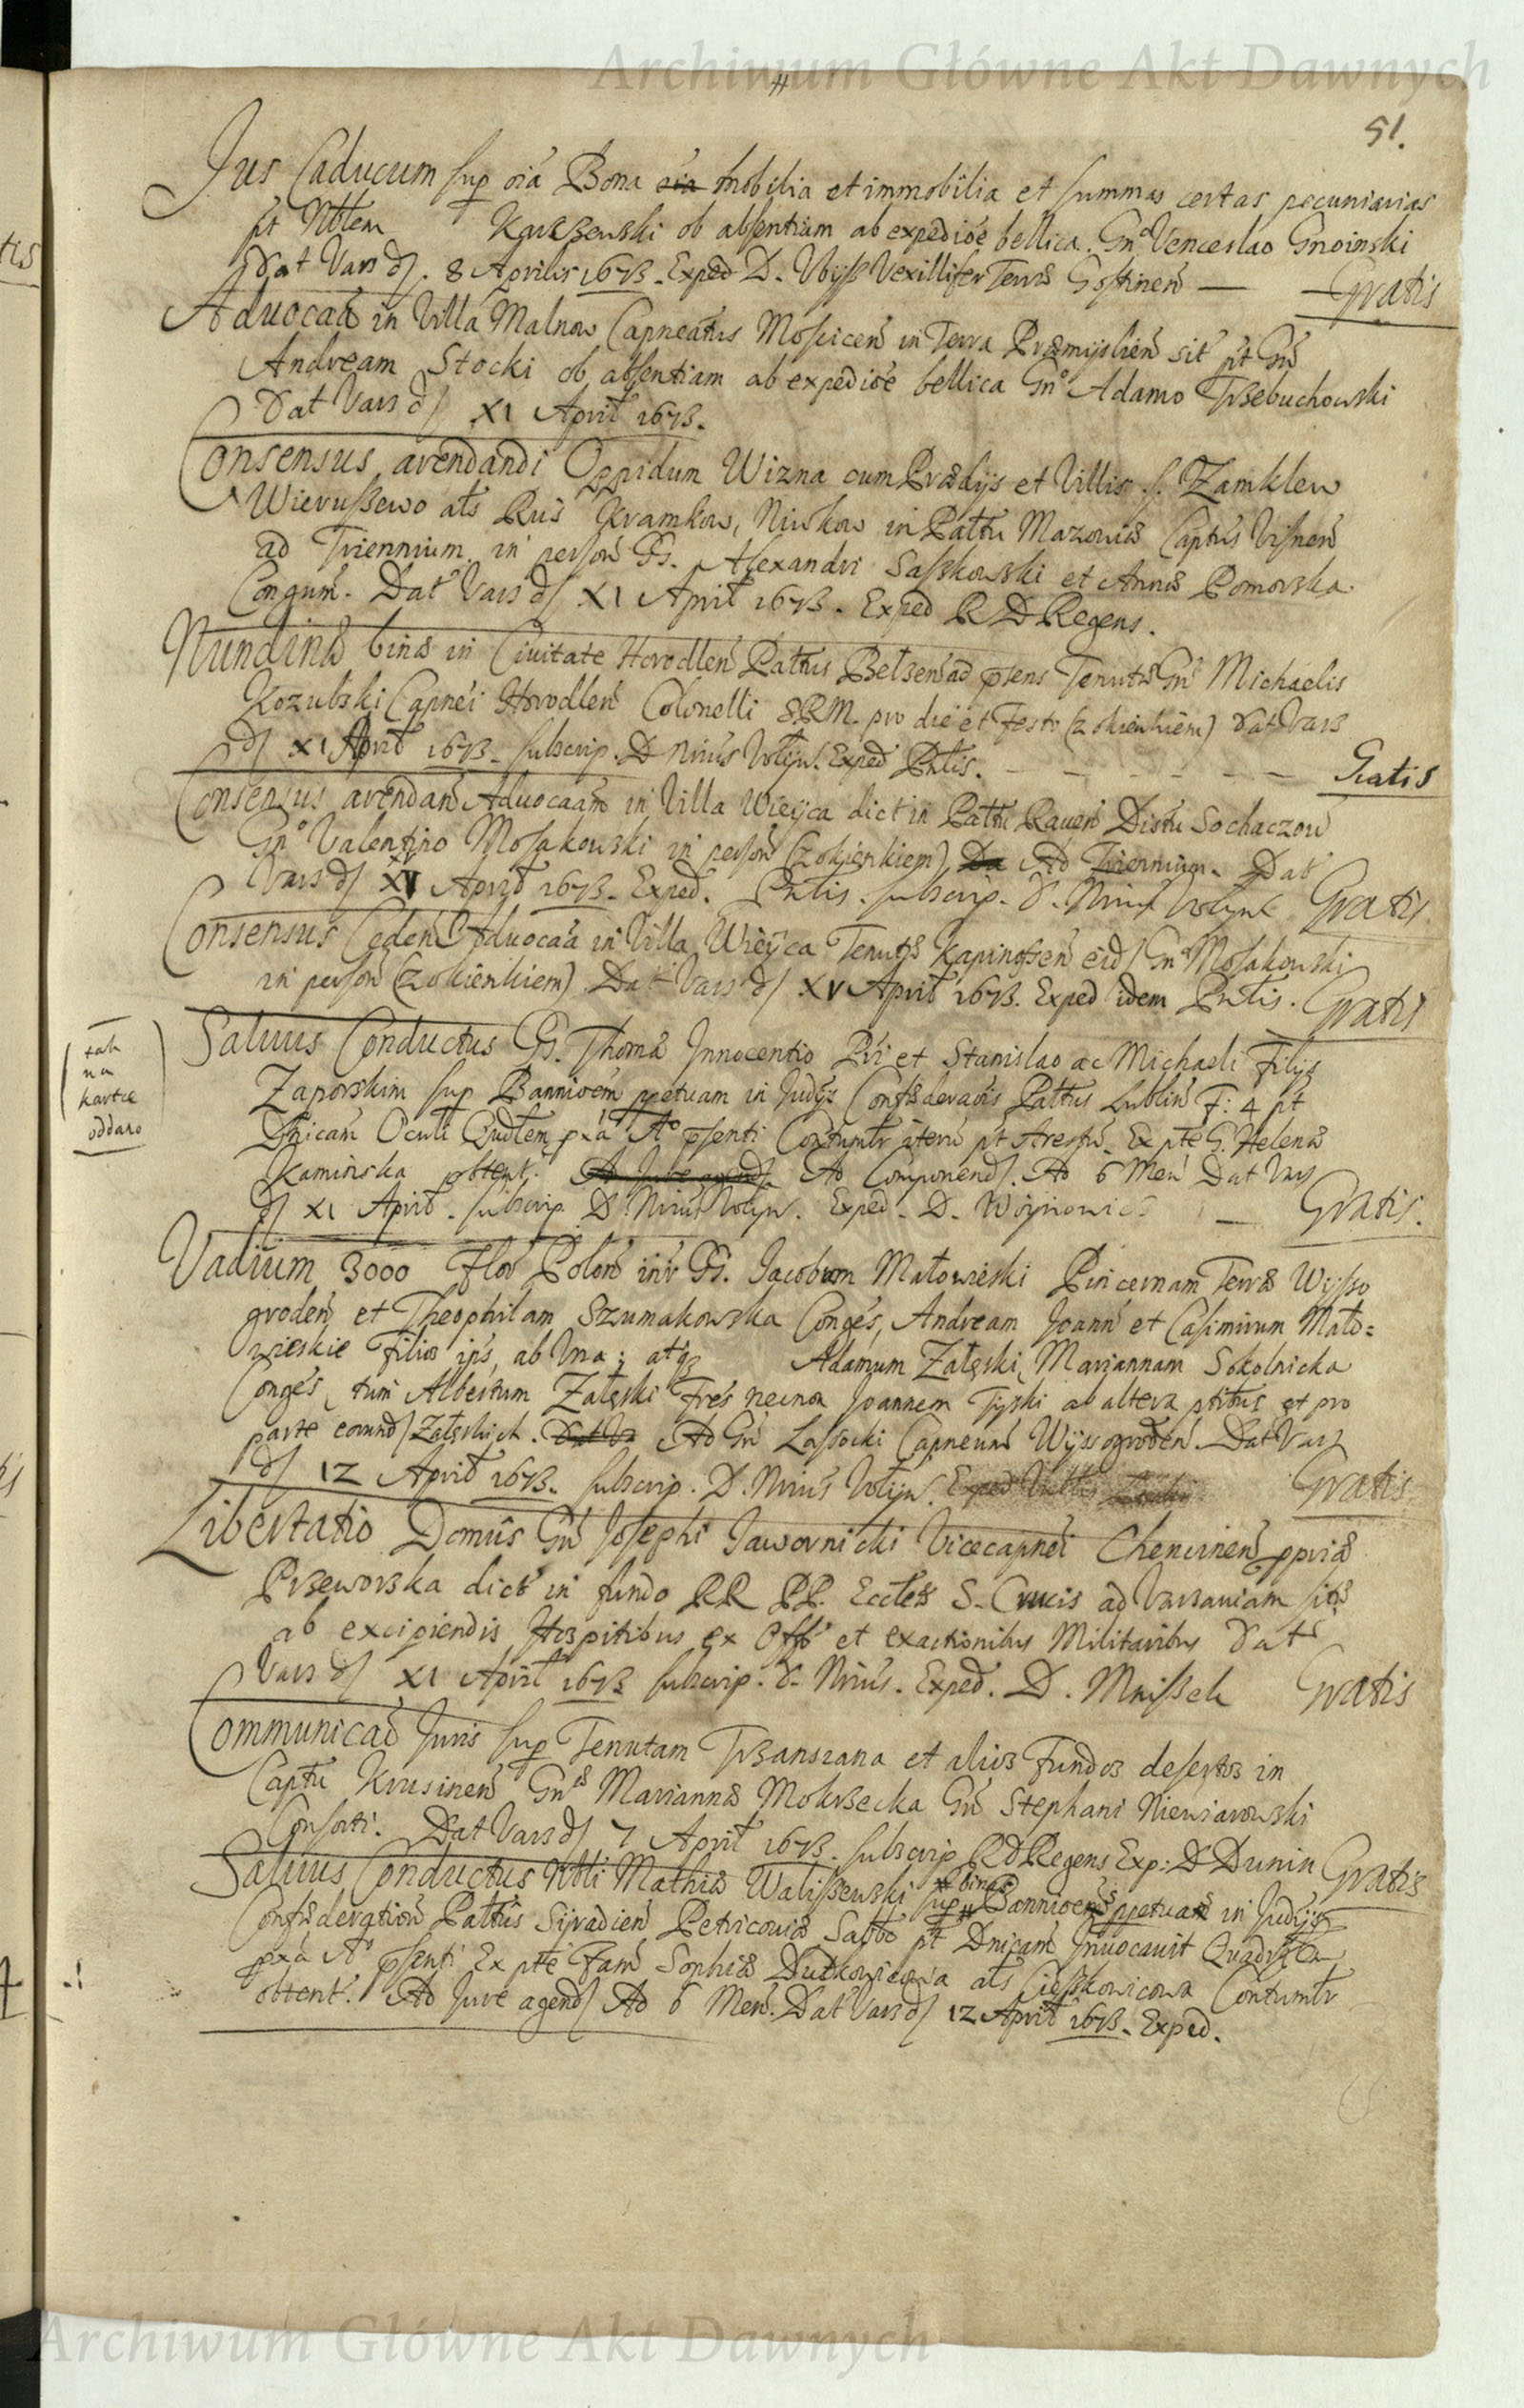 Archiwum Główne Akt Dawnych
51.
Jus Caducum sup oiā Bona mobilia et immobilia et summas certas pecuniarias
pt Nblem Karszewski ob absentiam ab expedioe bellica. Gn° Venceslao Gnoinski
Dat Vars d. 8 Aprilis 1673. Exped D. Vexillifer Terræ Gostinen — — Gratis
Advocaō in Villa Malnow Capneatus Moscicen in Terra Præmyslien sit pt Gn
Andream Stocki ob absentiam ab expedioe bellica Gn° Adamo Trzebuchowski
Dat Vars d XI April 1673.
Consensus arendandi Oppidum Wizna cum Prædijs et Villis s. Zamklew
Wierussewo als Rus Kramkow, Niwkow in Pattu Mazoviæ Captus Visnen
ad Triennium in person GG. Alexandri Sasskowski et Annæ Pomorska
Congum. Dat Vars d XI April 1673. Exped R D Regens.
Nundinæ binæ in Civitate Horodlen Pattus Belsen ad psens Tenutæ Gn Michaelis
Kozubski Capnei Horodlen Colonelli S.R.M. pro die et Festo (z okienkiem) Dat Vars
d XI April 1673. subscrip. D Nrius Volyn. Exped Pntis. — — — — — Gratis
Consensus arendan Advocaam in Villa Wieyca dict in Pattu Raven Distu Sochaczow
Gn° Valentino Mosakowski in person (z okienkiem) Da Ad Triennium. Dat
Vars d XV April 1673. Exped. Pntis. subscrip. D. Nrius Volyn Gratis
Consensus Ceden Advocaa in Villa Wieyca Tenutæ Kapinosen eid Gn Mosakowski
in person (z okienkiem) Dat Vars d XV April 1673. Exped idem Pntis. Gratis
tak
na
kartce
oddano
Salvus Conductus GG. Thomæ Innocentio Pri et Stanislao ac Michaeli Filijs
Zaporskim sup Bannioem ppetuam in Judijs Confæderaois Pattus Lublin F: 4 pt
Dnicam Oculi Qudlem pxa A° psenti Contumtr pt Arestū Ex pte G. Helenæ
Kaminska obtent. Ad Jure agend. Ad Componend. Ad 6 Men Dat Vars
d XI April. subscrip D. Nrius Volyn. Exped. D. — Gratis.
Vadium 3000 Flor Polon intr GG. Jacobum Małowieski Pincernam Terræ Wysso
groden et Theophilam Szumakowska Conges, Andream Joann et Casimirum Mało=
wieskie Filios ips, ab Una; atqz Adamum Załęski, Mariannam Sokolnicka
Conges, tum Albertum Załęski Fres necnon Joannem Tyski ab altera ptibus et pro
parte eorund Załęskich. Dat Va Ad Gn Lassocki Capneum Wyssogroden. Dat Vars
d 12 April 1673. subscrip. D. Nrius Volyn. Gratis
Libertatio Domus Gn Josephi Jawornicki Vicecapnei Chencinen ppriæ
Przeworska dict in fundo RR PP. Eccleæ S. Crucis ad Varsaviam sitæ
ab excipiendis Hospitibus ex Offo et exactionibus Militaribus Dat
Vars d XI April 1673 subscrip. D. Nrius. Exped. D. Mnissek Gratis
Communicaō Juris sup Tenutam Trzanszana et alios Fundos desertos in
Captu Krusinen Gn Mariannæ Mokrzecka Gn Stephani Niewiarowski
Consorti. Dat Vars d 7 April 1673. subscrip RD Regens Exp: D Dunin Gratis
Salvus Conductus Nbli Mathiæ Walissewski sup # binas Bannioes ppetuas in Judijs
Confæderation Pattus Syradien Petricoviæ Sabbo pt Dnicam Invocavit Quadrlem
pxa A° psenti Ex pte Fam Sophiæ Dudkowicowa als Ciesskowicowa Contumtr
obtent. Ad Jure agend Ad 6 Men. Dat Vars d 12 April 1673. Exped.
Archiwum Główne Akt Dawnych